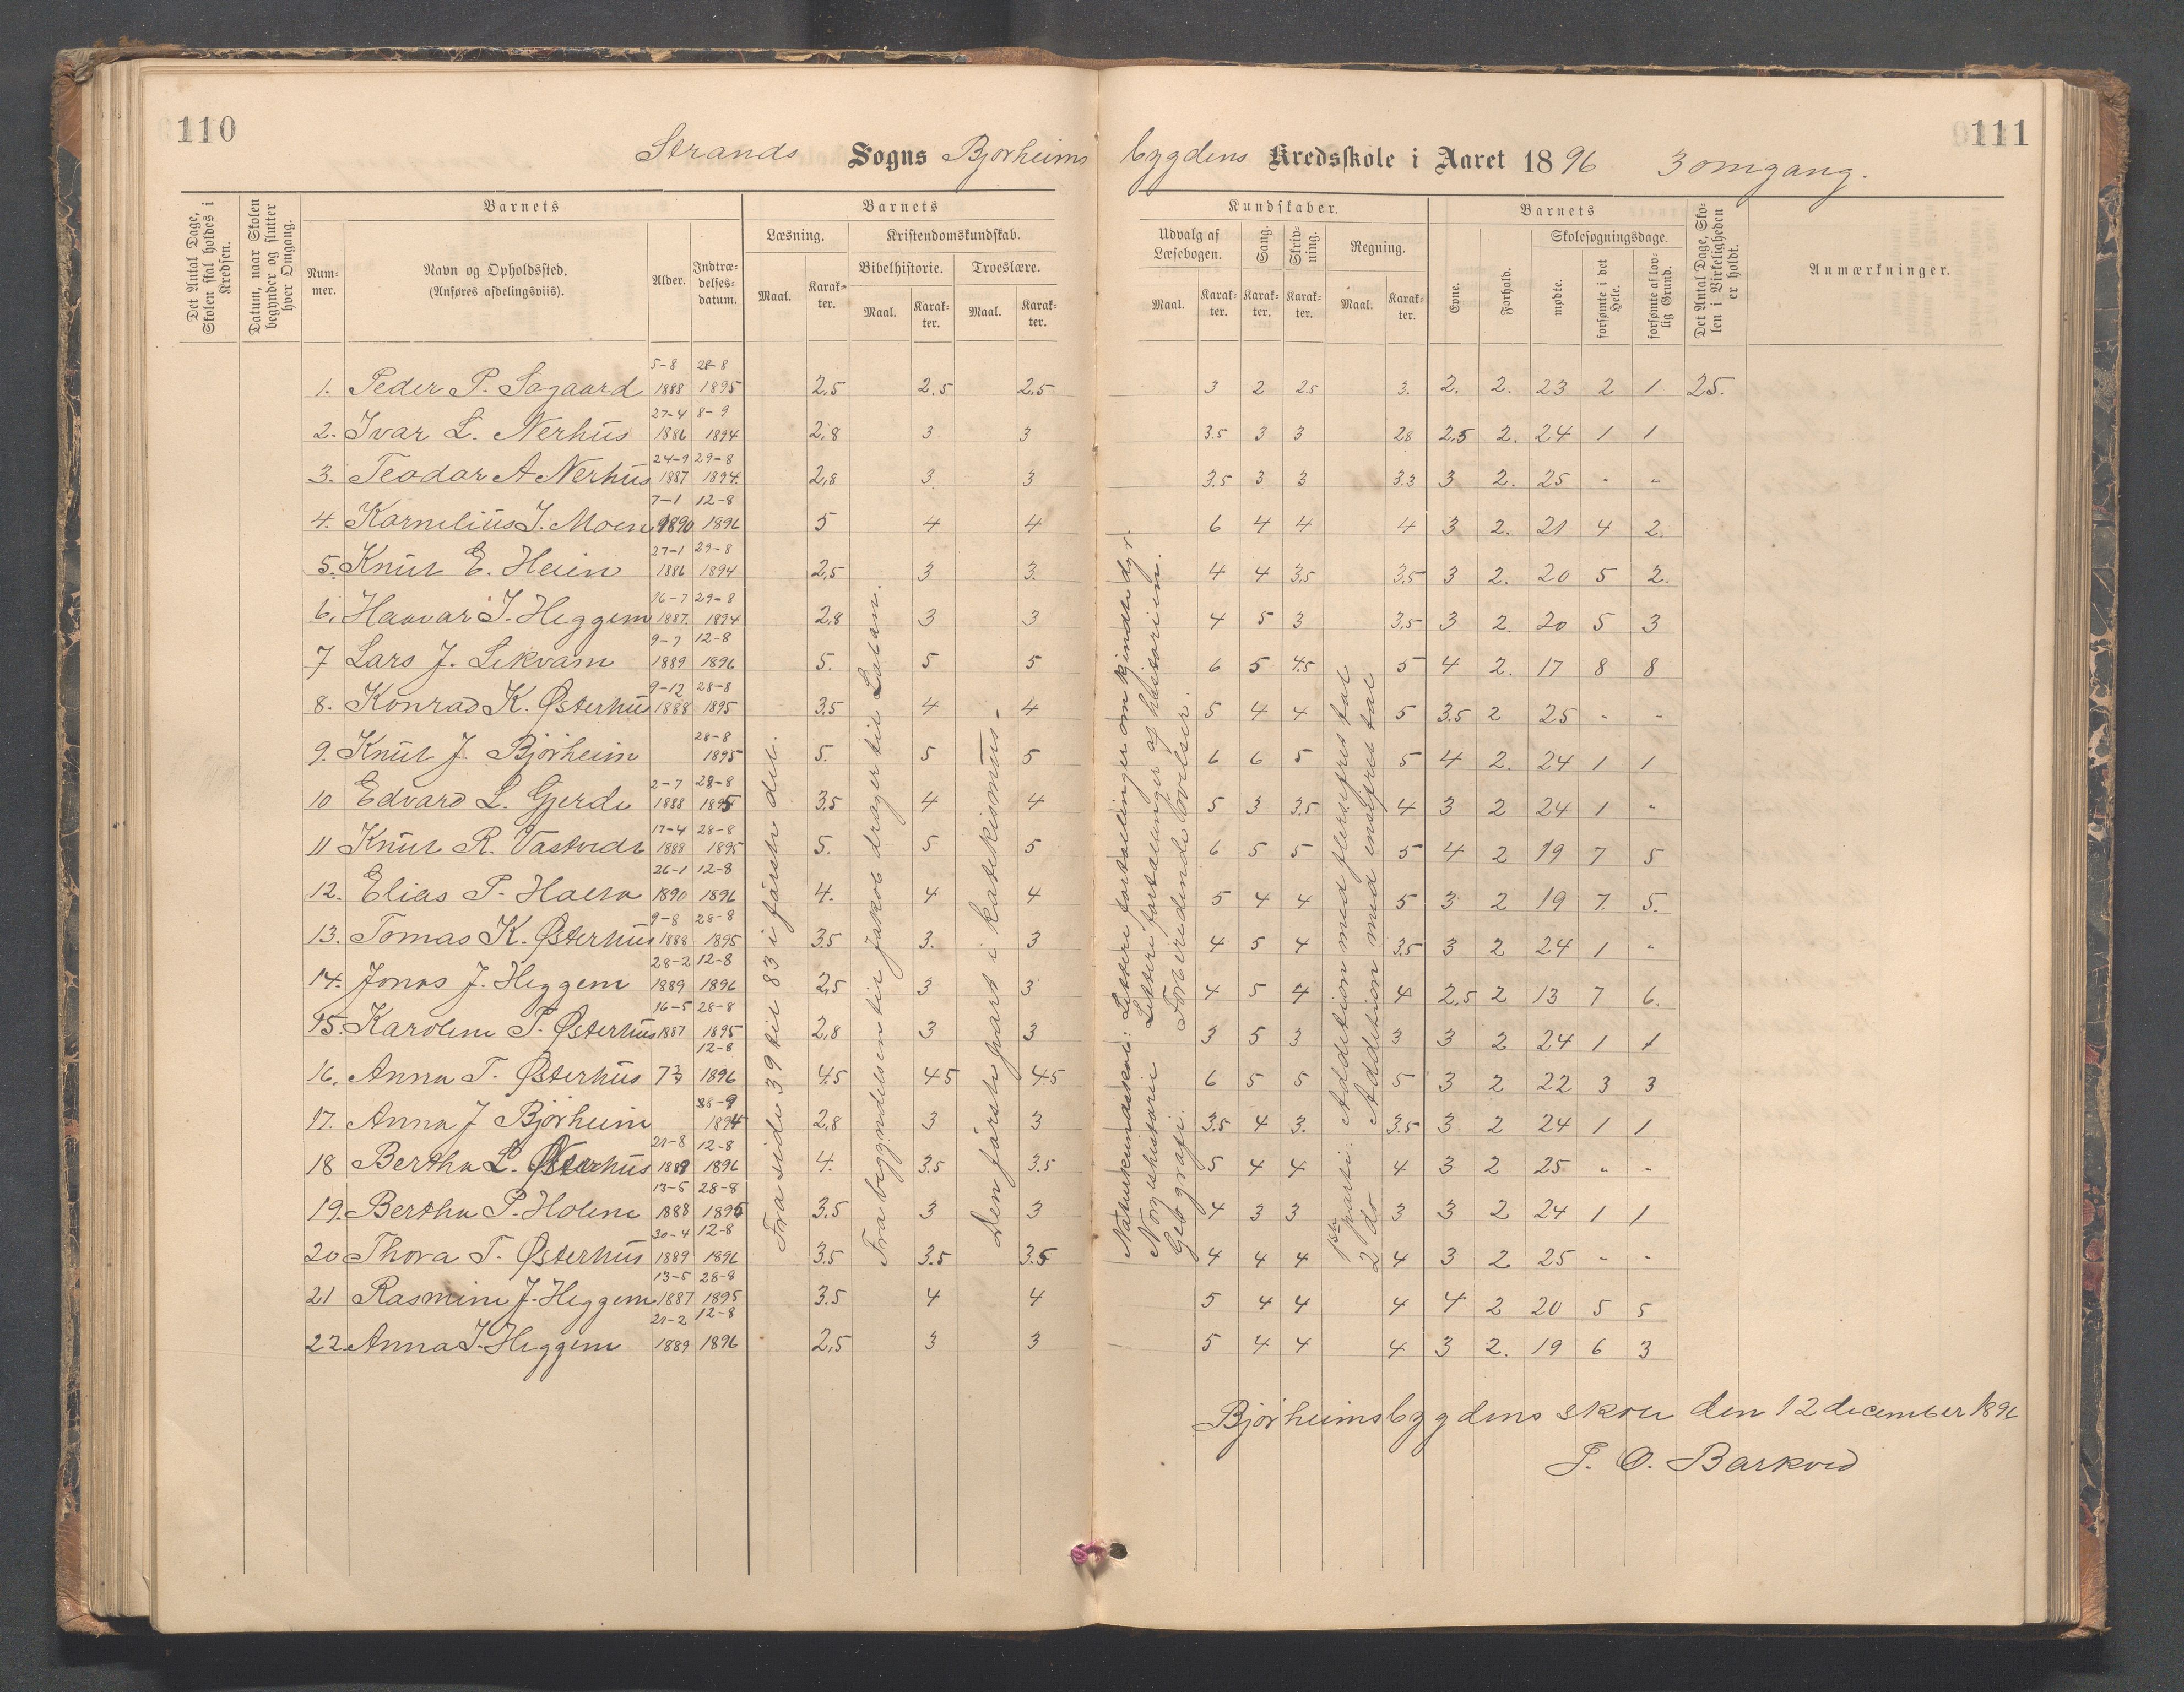 110
Strands Sogns Bjørheims bygdens Kredsskole i Aaret 1896 3 omgang.
111
Det Antal Dage, Skolen skal holdes i Kredsen.
Datum, naar Skolen begynder og slutter hver Omgang.
Barnets
Nummer.
Navn og Opholdssted.
(Anføres afdelingsviis).
Alder.
Indtrædelses-datum.
Barnets
Læsning.
Maal.
Karakter.
Kristendomskundskab.
Bibelhistorie.
Maal.
Karakter.
Troeslære.
Maal.
Karakter.
Kundskaber.
Udvalg af Læsebogen.
Maal.
Karakter.
Sang.
Karakter.
Skrivning.
Karakter.
Regning.
Maal.
Karakter.
Barnets
Evne.
Forhold.
Skolesøgningsdage.
mødte.
forsømte i det Hele.
forsømte af lovlig Grund.
Det Antal Dage, Skolen i Virkeligheden er holdt.
Anmærkninger.
1. Peder P. Sagaard 5-8 1888 28-8 1895 2,5 2.5 2.5 3 2 2.5 3. 2. 2. 23 2 1 25.
2. Ivar L. Nerhus 27-4 1886 8-9 1894 2,8 3 3 3.5 3 3 2.8 2,5 2. 24 1 1
3. Teodor A Nerhus 24-9 1887 29-8 1894. 2,8 3 3 3.5 3 3 3.3 3 2. 25 - -
4. Kornelius I. Moen 7-1 1890 12-8 1896 5 4 4 6 4 4 4 3 2. 21 4 2.
5. Knut E. Heien 27-1 1886 29-8 1894 2,5 3 3. 4 4 3,5 3,5 3 2. 20 5 2.
6. Haavar I. Heggem 16-7 1887. 29-8 1894 2,8 3 3 4 5 3 3,5 3 2. 20 5 3
7 Lars J. Lekvam 9-7 1889 12-8 1896 5. 5 5 6 5 4.5 5 4 2. 17 8 8
8. Konrad K. Østerhus 9-12 1888 28-8 1895 3.5 4 4 5 4 4 5 3.5 2 25 - -
9. Knut J. Bjørheim 28-8 1895 5. 5 5 6 6 5 5 4 2. 24 1 1
10 Edvard L. Gjerde 2-7 1888 28-8 1895 3.5 4 4 5 3 3.5 4 3 2 24 1 "
11 Knut R. Vastvedt 17-4 1888 28-8 1895 5. 5 5 6 5 5 5 4 2 19 7 5
12. Elias P. 26-1 1890 12-8 1896 4. 4 4 5 4 4 5 3 2 19 7. 5.
13. Tomas K. Østerhus 9-8 1888 28-8 1895 3.5 3. 3 4 5 4 3.5 3 2 24 1 "
14. Jonas J. Heggem 28-2 1889 12-8 1896 2,5 3 3 4 5 4 4 2,5 2 13 7 6.
15. Karoline T. Østerhus 16-5 1887 28-8 1895 2,8 3 3 3 5 3 3 3 2 24 1 1
16. Anna T. Østerhus 12-8 1896 4.5 4.5 4.5 6 5 5 5 3 2 22 3 3
17. Anna J Bjørheim 1894 2,8 3 3 3.5 4 3. 3.5 3 2 24 1 1
18 Bertha L. Østerhus 21-8 1889 12-8 1896 4. 3.5 3.5 5 4 4 4 3 2 25 " "
19. Bertha P. Holene 13-5 1888 28-8 1895 3.5 3 3 4 3 3 3 3 2 24 1 1
20 Thora T. Østerhus 30-4 1889 12-8 1896 3.5 3.5 3.5 4 4 4 4 3 2 25 - -
21 Rasmine J. Heggem 13-5 1887 28-8 1895 3.5 4 4 5 4 4 4 4 2 20 5 5
22. Anna I. Heggem 21-2 1889 12-8 1896 2,5 3 3 5 4 4 4 3 2. 19 6 3
Fra side 39 til 83 i første del.
Fra begyndelsen til Jakob drager til Laban.
Den første part i katekismus.
Naturkundskab: Lettere fortællinger om kjendte dyr.
Norgshistorie Lettere fortællinger af historien.
Geografi. Forberedende øvelser.
1ste parti: Addition med flersifret tal
2 do Addition med ensifret tal
Bjørheimsbygdens skole den 12 december 1896
T. O. Barkved